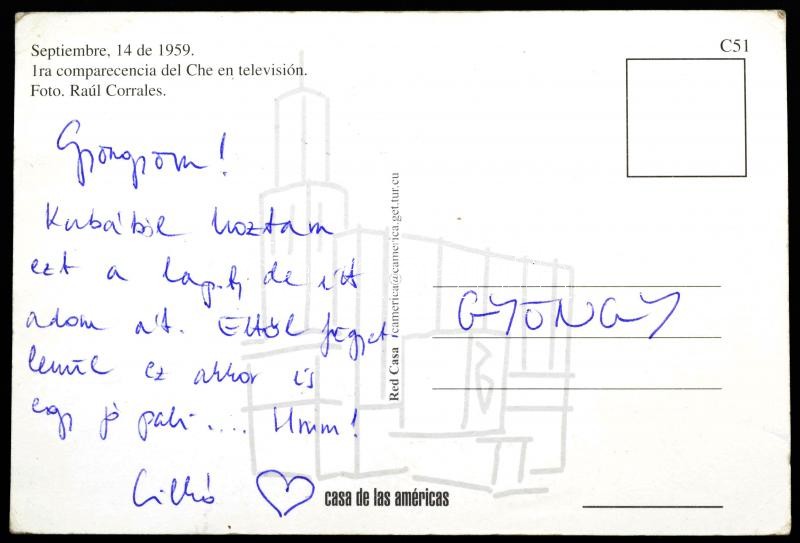 Septiembre, 14 de 1959.
1ra comparecencia del Che en televisión.
Foto. Raúl Corrales.
C51
Gyöngyöm!
Kubából hoztam
ezt a lapot, de itt
adom át. Ettől függet
lenül ez akkor is
egy jó pali .... Hmm!
Cilkó
GYÖNGY
Red Casa camerica@camerica.get.tur.cu
casa de las américas